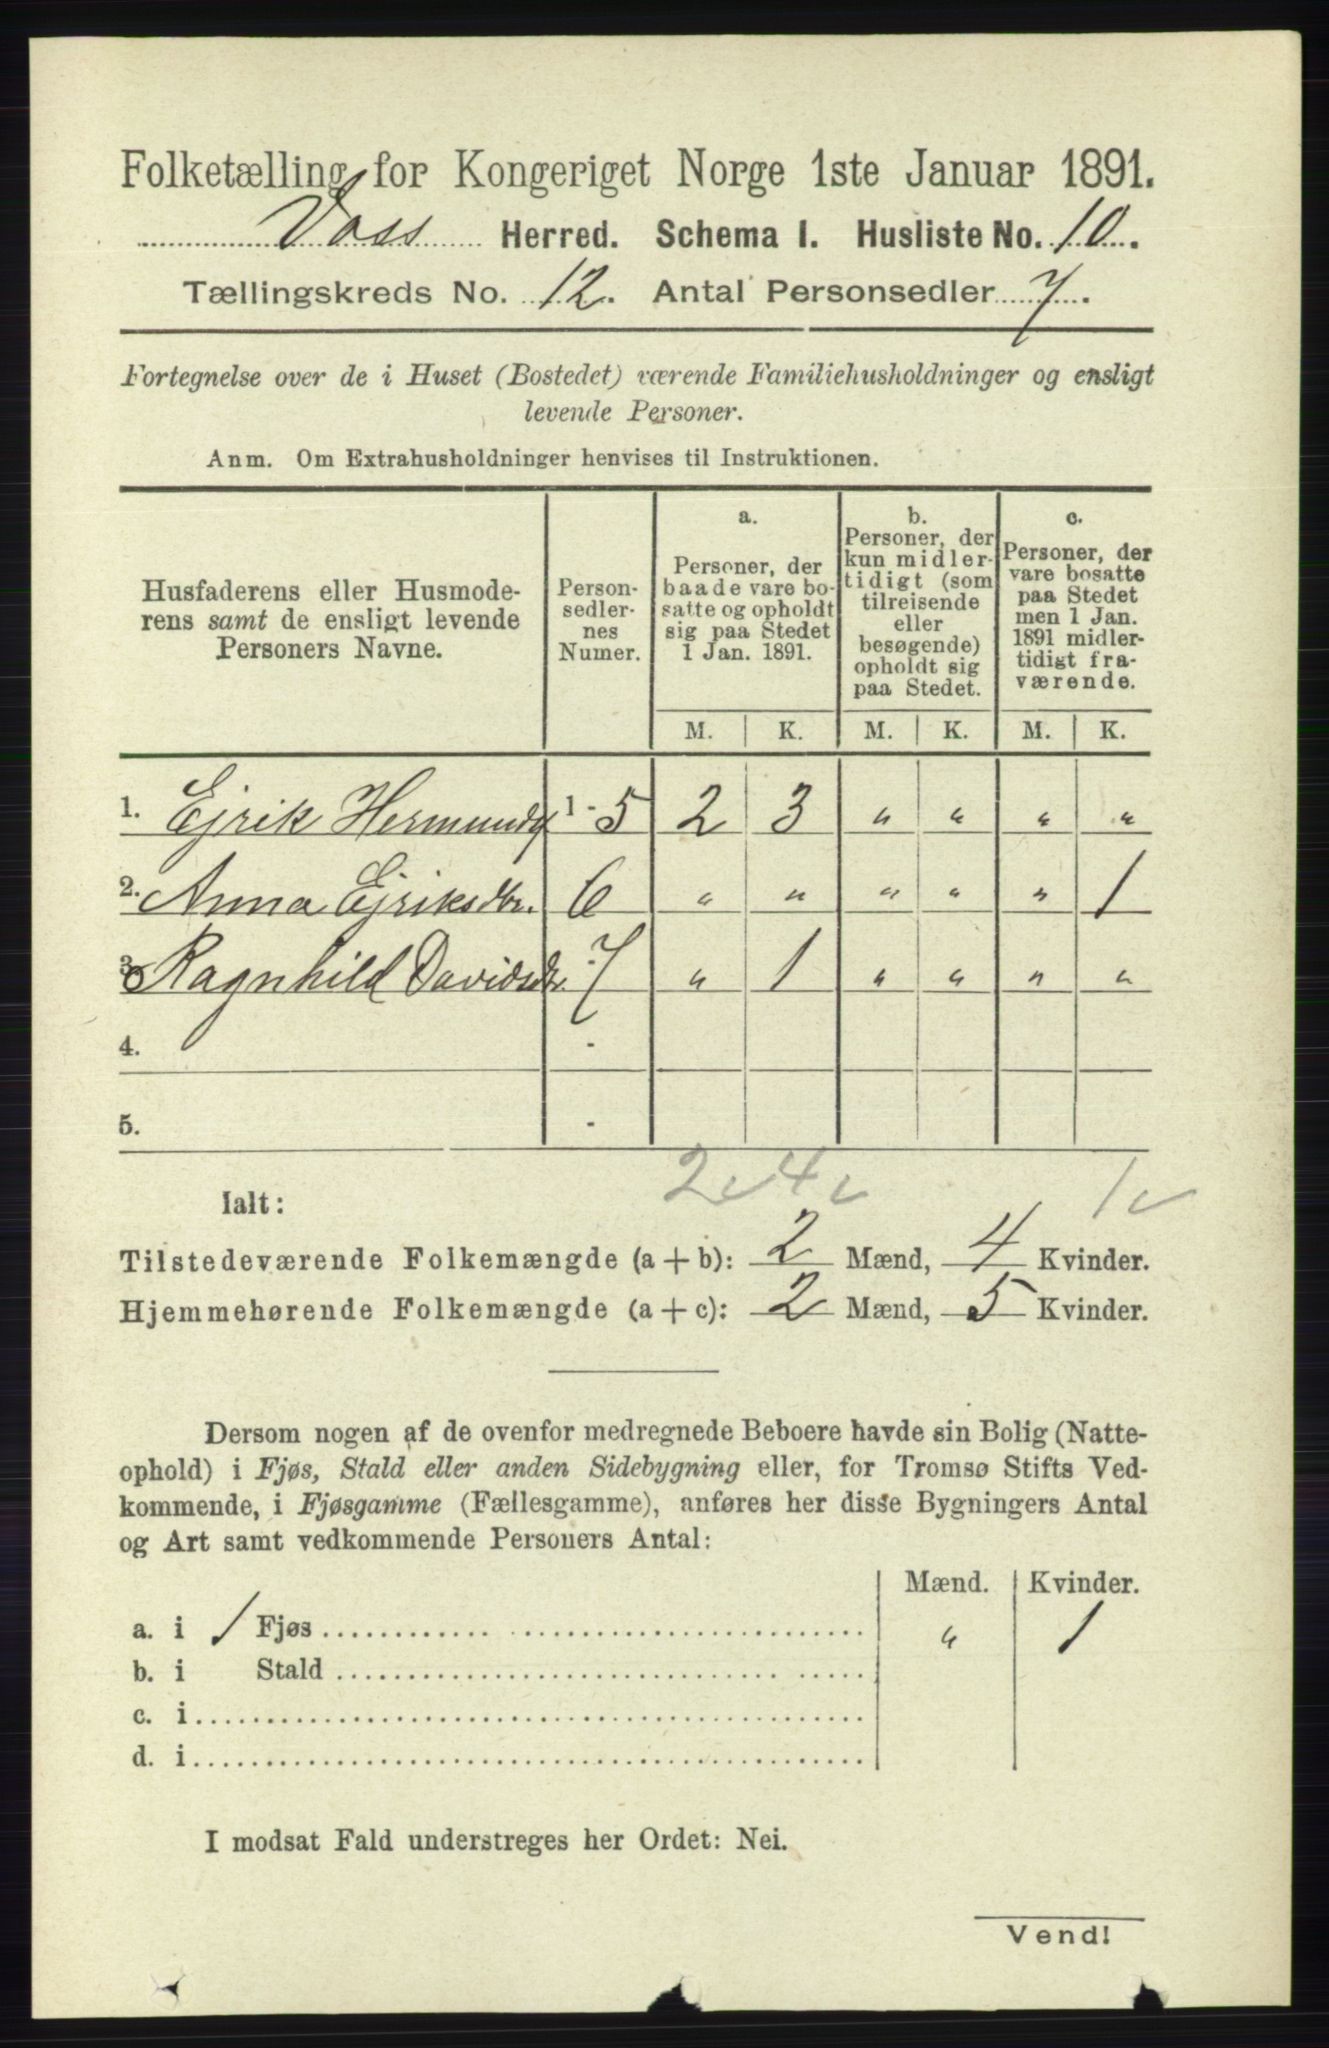 Folketælling for Kongeriget Norge 1ste Januar 1891.
Voss Herred. Schema I. Husliste No. 10.
Tællingskreds No. 12. Antal Personsedler 7.
Fortegnelse over de i Huset (Bostedet) værende Familiehusholdninger og ensligt
levende Personer.
Anm. Om Extrahusholdninger henvises til Instruktionen.
Husfaderens eller Husmode-
rens samt de ensligt levende
Personers Navne.
Person-
sedler-
nes
Numer.
a.
Personer, der
baade vare bo-
satte og opholdt
sig paa Stedet
1 Jan. 1891.
b.
Personer, der
kun midler-
tidigt (som
tilreisende
eller
besøgende)
opholdt sig
paa Stedet.
c.
Personer, der
vare bosatte
paa Stedet
men 1 Jan.
1891 midler-
tidigt fra-
værende.
M. K. M. K. M. K.
1. Ejrik Hermunds 1 - 5 2 3 " " " "
2. Anna Ejriksdtr. 6 " " " " " 1
3. Ragnhild Davidsdtr. 7 " 1 " " " "
4. -
5. -
2 4 1
Ialt:
Tilstedeværende Folkemængde (a + b): 2 Mænd, 4 Kvinder.
Hjemmehørende Folkemængde (a + c): 2 Mænd, 5 Kvinder.
Dersom nogen af de ovenfor medregnede Beboere havde sin Bolig (Natte-
ophold) i Fjøs, Stald eller anden Sidebygning eller, for Tromsø Stifts Ved-
kommende, i Fjøsgamme (Fællesgamme), anføres her disse Bygningers Antal
og Art samt vedkommende Personers Antal:
Mænd. Kvinder.
a. i 1 Fjøs " 1
b. i Stald
c. i
d. i
I modsat Fald understreges her Ordet: Nei.
Vend!